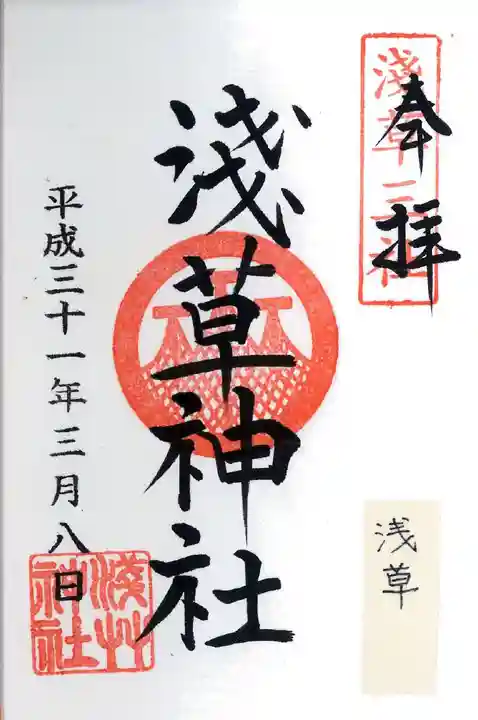 奉拝
淺草三社
淺草神社
平成三十一年三月八日
淺草
神社
浅草